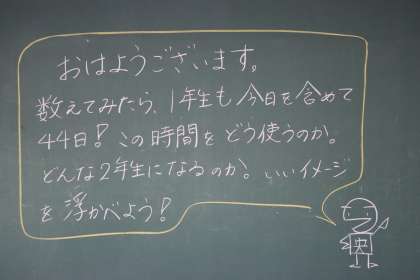 おはようございます。
数えてみたら、1年生も今日を含めて
44日！この時間をどう使うのか。
どんな2年生になるのか。いいイメージ
を浮かべよう！
央